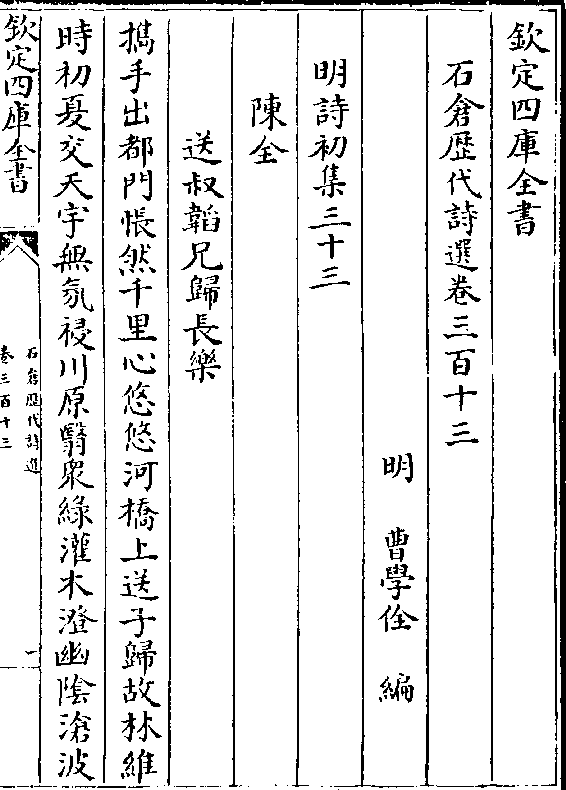 欽定四庫全書
石倉歴代詩選卷三百十三
明 曹學佺 編
明詩初集三十三
陳全
送叔韜兄歸長樂
攜手出都門悵然千里心悠悠河橋上送子歸故林維
時初夏交天宇無氛祲川原翳衆綠灌木澄幽陰滄波
欽定四庫全書
石倉歴代詩選
卷三百十三
一